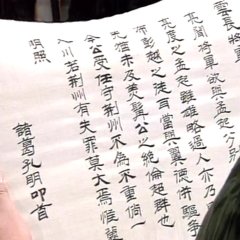 雲長將
亮聞將軍欲與孟起分
亮度之孟起雖雄略過人亦乃
布彭越之徒耳當與翼德併驅爭
先猶未及美髯公之絕倫超群也
今公受任守荊州不為不重倘一
入川若荊州有失罪莫大焉惟冀
明照
諸葛孔明叩首